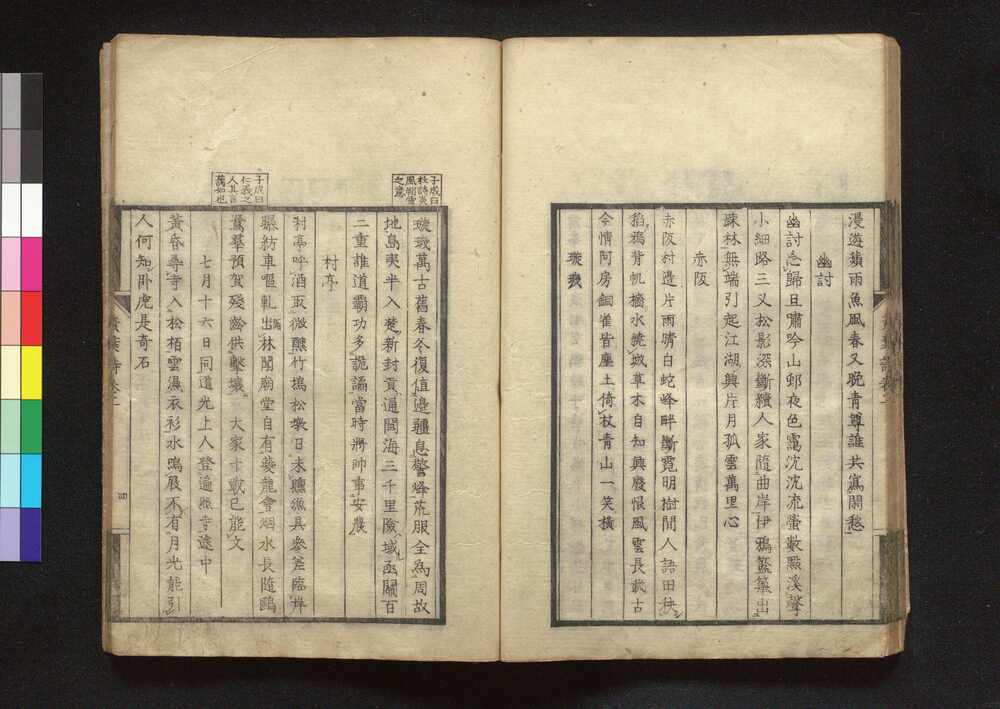 漫遊積雨魚風春又晩青尊誰共寫閑愁
幽討
幽討忘歸且嘯吟山郵夜色靄沈沈流螢數點溪聲
小細路三叉松影深斷續人家隨曲岸伊鴉籃篥出
疎林無端引起江湖興片月孤雲萬里心
赤阪
赤阪村邊片雨晴白蛇峰畔斷霓明樹間人語田
鴉背帆檣水城草木自知興廢恨風雲長載古
今情阿房銅雀皆塵土倚杖青山一笑橫
璇璣
子成曰
杜詩長
風
之意
璇璣萬古舊春冬復值邊疆息警烽荒服全為周故
地島夷半入楚新封貢通閩海三千里險域函關百
二重誰道霸功多詭譎當時將帥事安農
村亭
村亭呼酒取微醺竹塢松墩日未曛漁具參差臨岸
紡車嘔軋出林聞廟堂自有夔龍會烟水長隨鷗
鷺羣預駕殘齡供擊壤大家十載已能文
子成曰
仁義之
人其言
藹如也
七月十六日同道光上人登遍照寺途中
黃昏尋寺入松栢雲濕衣衫水鳴屐不有月光能引
人何知卧虎是奇石